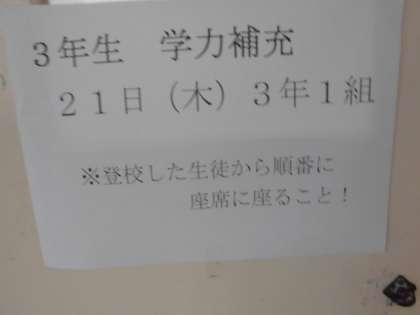 ３年生　学力補充
２１日（木）３年１組
※登校した生徒から順番に
座席に座ること！